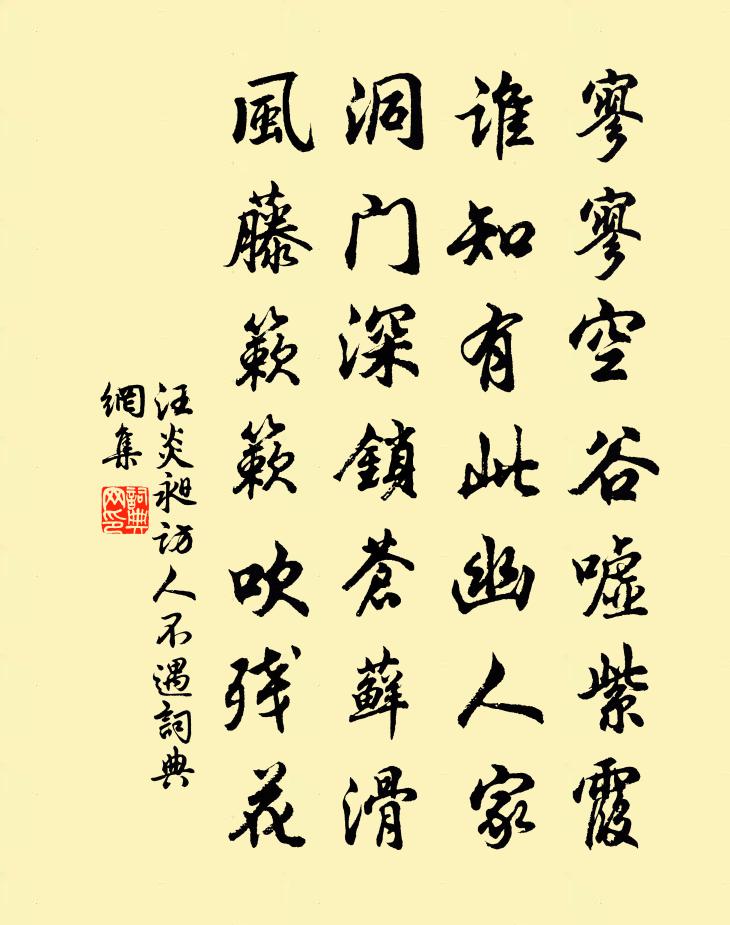 寥寥空谷噓紫霞
誰知有此幽人家
洞门深鎖蒼蘚滑
風藤簌簌吹残花
汪炎昶访人不遇詞典
網集
詞典
网印